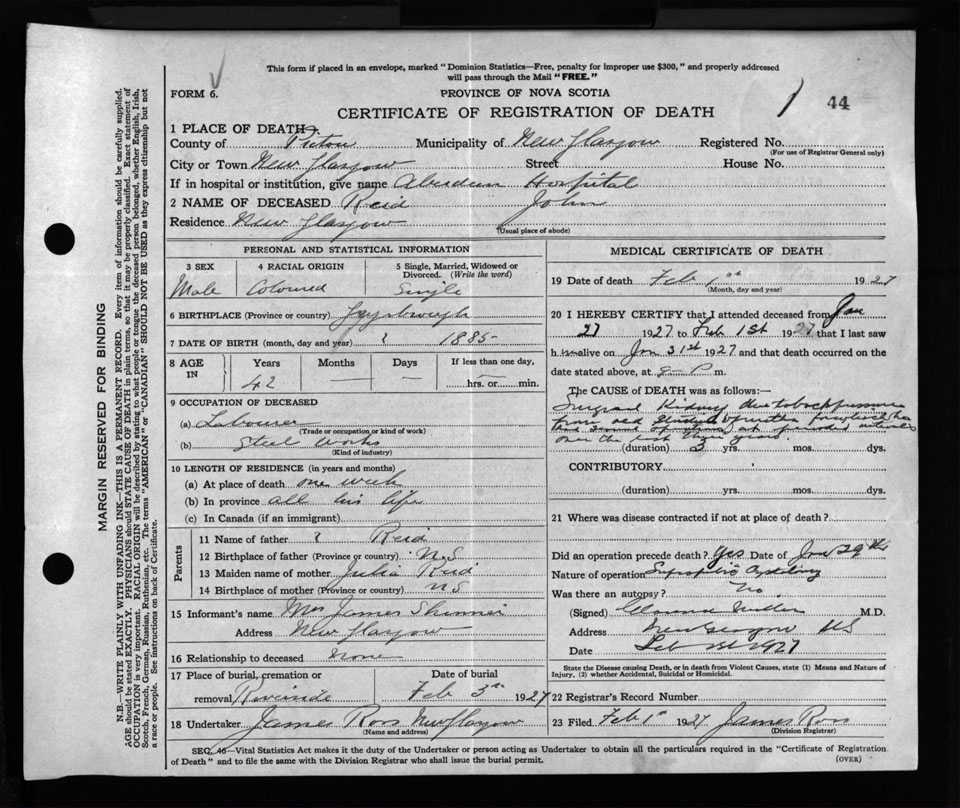 This form if placed in an envelope, marked "Dominion Statistics—Free, penalty for improper use $300," and properly addressed
will pass through the Mail "FREE."
FORM 6.
PROVINCE OF NOVA SCOTIA
CERTIFICATE OF REGISTRATION OF DEATH
44
1 PLACE OF DEATH
County of Pictou Municipality of New Glasgow Registered No.
(For use of Registrar General only)
City or Town New Glasgow Street House No.
If in hospital or institution, give name Aberdeen Hospital
2 NAME OF DECEASED Reid John
Residence New Glasgow
(Usual place of abode)
PERSONAL AND STATISTICAL INFORMATION
3 SEX Male
4 RACIAL ORIGIN Coloured
5 Single, Married, Widowed or Divorced. (Write the word) Single
6 BIRTHPLACE (Province or country) Guysborough
7 DATE OF BIRTH (month, day and year) ? 1885
8 AGE IN Years Months Days If less than one day,
42 — — hrs. or min.
9 OCCUPATION OF DECEASED
(a) Labourer
(Trade or occupation or kind of work)
(b) Steel Works
(Kind of industry)
10 LENGTH OF RESIDENCE (in years and months)
(a) At place of death one week
(b) In province all his life
(c) In Canada (if an immigrant)
Parents
11 Name of father ? Reid
12 Birthplace of father (Province or country) N.S
13 Maiden name of mother Julia Reid
14 Birthplace of mother (Province or country) NS
15 Informant's name Mrs James Skinner
Address New Glasgow
16 Relationship to deceased None
17 Place of burial, cremation or removal Riverside
Date of burial Feb 3rd 1927
18 Undertaker James Ross New Glasgow
(Name and address)
MEDICAL CERTIFICATE OF DEATH
19 Date of death Feb 1st 1927
(Month, day and year)
20 I HEREBY CERTIFY that I attended deceased from Jan
27 1927 to Feb 1st 1927 that I last saw
him alive on Jan 31st 1927 and that death occurred on the
date stated above, at 9 P m.
The CAUSE of DEATH was as follows:—
Surgical Kidney due to back pressure
over the last three years.
(duration) 3 yrs. mos. dys.
CONTRIBUTORY
(duration) yrs. mos. dys.
21 Where was disease contracted if not at place of death?
Did an operation precede death? Yes Date of Jan 29th
Nature of operation Suprapubic Cystotomy
Was there an autopsy? No
(Signed) Miller M.D.
Address New Glasgow NS
Date Feb 1st 1927
State the Disease causing Death, or in death from Violent Causes, state (1) Means and Nature of
Injury, (2) whether Accidental, Suicidal or Homicidal.
22 Registrar's Record Number
23 Filed Feb 1st 1927 James Ross
(Division Registrar)
SEC. 46—Vital Statistics Act makes it the duty of the Undertaker or person acting as Undertaker to obtain all the particulars required in the "Certificate of Registration
of Death" and to file the same with the Division Registrar who shall issue the burial permit.
(OVER)
MARGIN RESERVED FOR BINDING
N.B.—WRITE PLAINLY WITH UNFADING INK—THIS IS A PERMANENT RECORD. Every item of information should be carefully supplied.
AGE should be stated EXACTLY. PHYSICIANS should STATE CAUSE OF DEATH in plain terms, so that it may be properly classified. Exact statement of
OCCUPATION is very important. RACIAL ORIGIN will be described by stating to what people or tongue the deceased person belonged, whether English, Irish,
Scotch, French, German, Russian, Ruthenian, etc. The terms "AMERICAN" or "CANADIAN" SHOULD NOT BE USED as they express citizenship but not
a race or people. See instructions on back of Certificate.